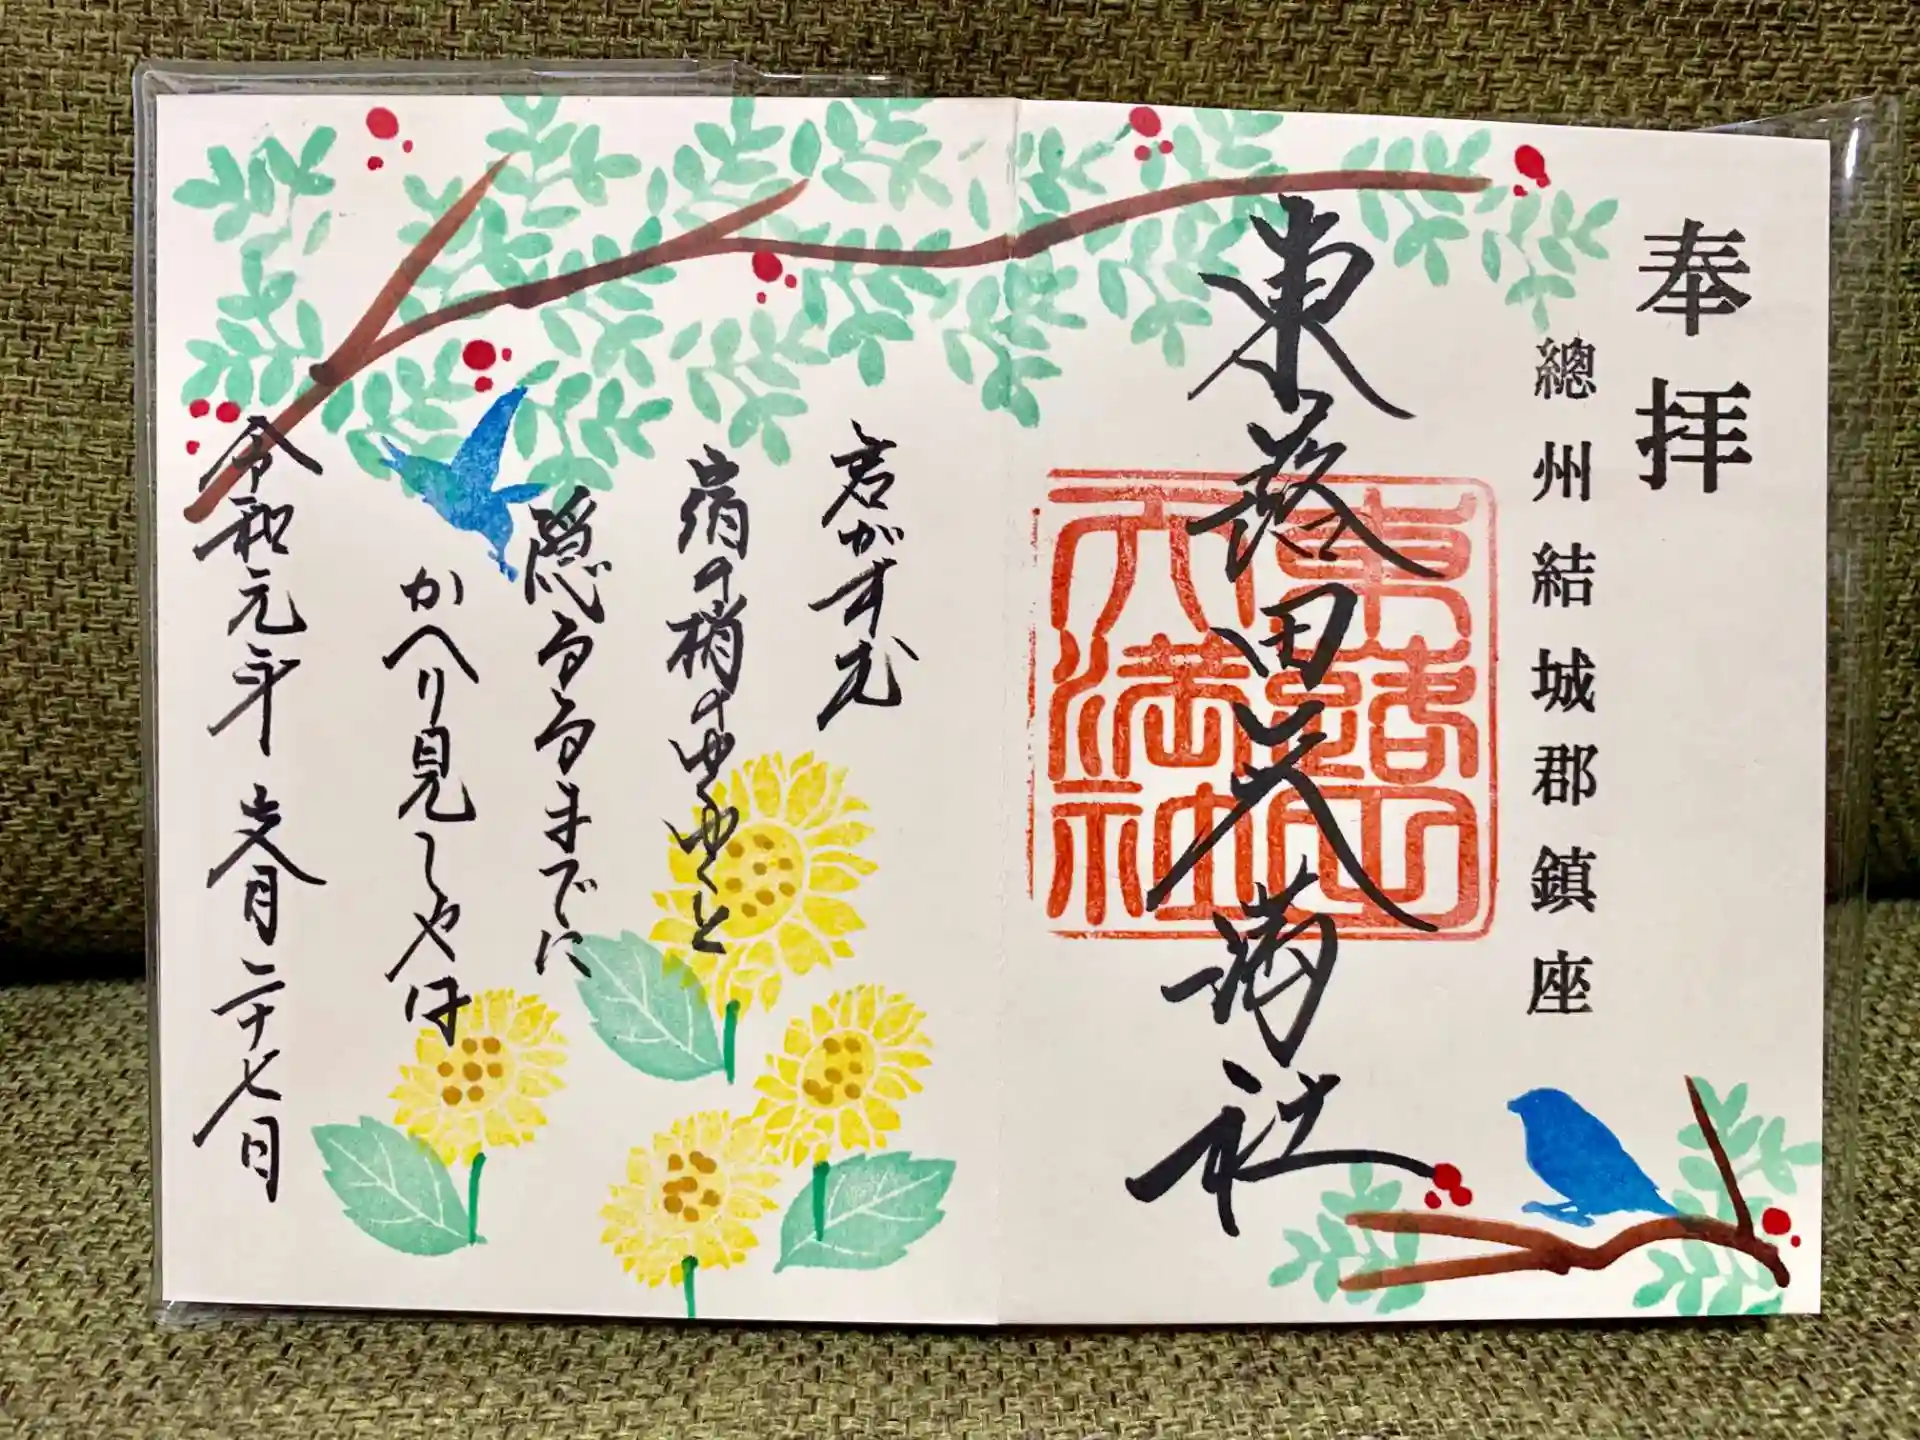 奉拝
總州結城郡鎮座
東蕗田天満社
東蕗田
天満社
君がすむ
宿の梢のゆくゆくと
隠るるまでに
かへり見しやは
令和元年 文月二十七日